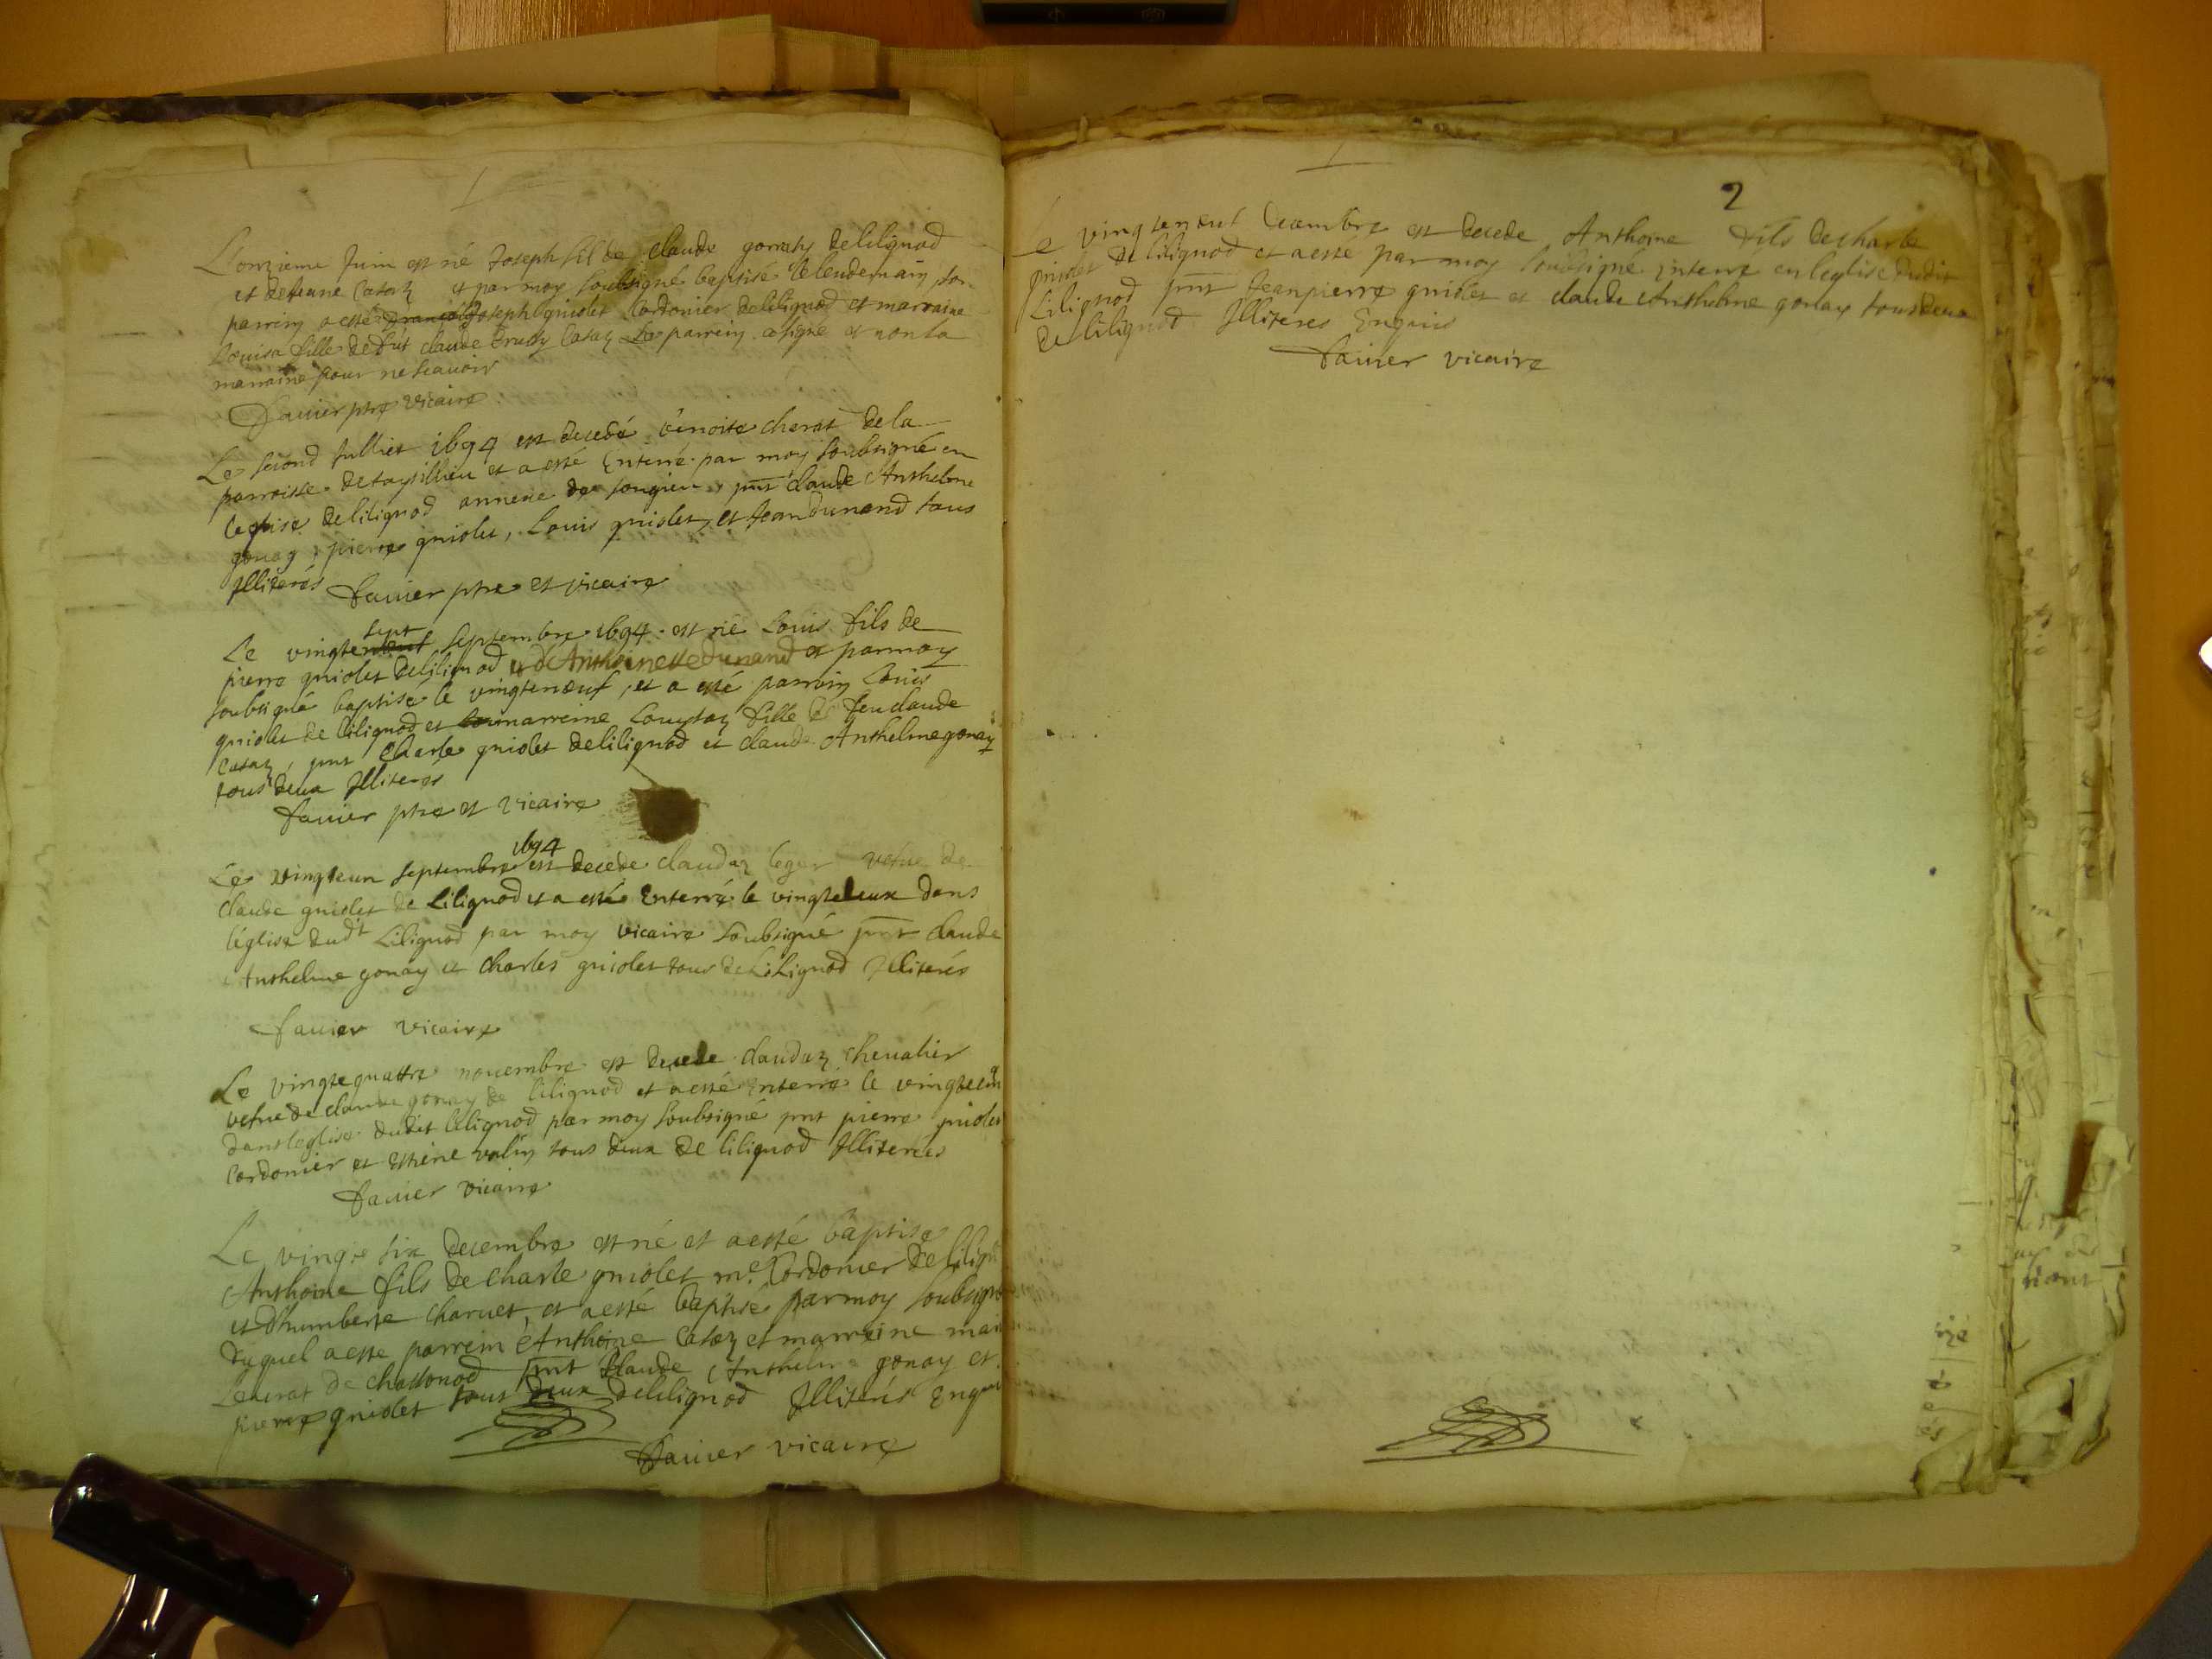 Lonzieme Juin est né Joseph fil de claude gonay delilignod
et de Jeane Casaz et par moy soubsigné baptisé le lendemain son
parrein a esté Joseph guiolet Cordonier de lilignod et marraine
Louisa fille de fut claude Casaz Le parrein a signé et non la
marraine pour ne scavoir
Favier ptre vicaire
Le second Julliet 1694 est decedé benoite charat de la
parroisse de taysillieu et a esté Enterré par moy soubsigné en
leglise de lilignod annexe de songieu, pnt claude Anthelme
gonay, pierre guiolet, Louis guiolet, et Jean dunand tous
Jlliterés Favier ptre et vicaire
sept
Le vingteneuf septembre 1694 est né Louis fils de
pierre guiolet de lilignod et d'Anthoinette dunand et par moy
soubsigné baptisé le vingteneuf, et a esté parrein Louis
guiolet de lilignod et marreine Louystaz fille de feu claude
Casaz, pnt Charle guiolet de lilignod et claude Anthelme gonay
tous deux Jlliterés
Favier ptre et vicaire
1694
Le vingteun septembre est decede claudaz leger vefve de
claude guiolet de Lilignod et a esté Enterré le vingtedeux dans
léglise dudt Lilignod par moy vicaire soubsigné pnt claude
Anthelme gonay et Charles guiolet tous de Lilignod Jlliterés
Favier vicaire
Le vingtequattre novembre est decede claudaz chevalier
vefve de claude gonay de lilignod et a esté Enterré le vingtecinq
dans leglise dudit lilignod par moy soubsigné pnt pierre guiolet
Cordonier et Estiene valin tous deux de lilignod Jlliterées
Favier vicaire
Le vingte six decembre est né et a esté baptisé
Anthoine fils de Charle guiolet me Cordonier de lilign
et d'humberte Charvet, et a esté baptisé par moy soubsigné
duquel a esté parrein Anthoine Casaz et marreine mar
de chassonod pnt Claude Anthelme gonay et
pierre guiolet tous deux de lilignod Jlliterés Enquis
Favier vicaire
2
Le vingteneuf decembre est decede Anthoine fils de charle
guiolet de lilignod et a esté par moy soubsigné Enterré en leglise dudit
Lilignod pnt Jean pierre guiolet et claude Anthelme gonay tous deux
de lilignod Jlliteres Enquis
Favier vicaire